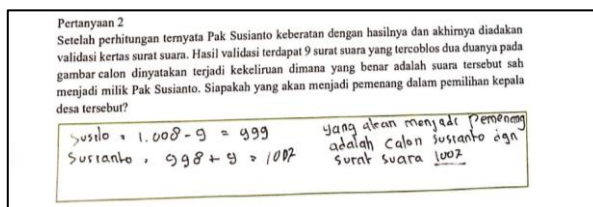 Pertanyaan 2
Setelah perhitungan ternyata Pak Susianto keberatan dengan hasilnya dan akhirnya diadakan
validasi kertas surat suara. Hasil validasi terdapat 9 surat suara yang tercoblos dua duanya pada
gambar calon dinyatakan terjadi kekeliruan dimana yang benar adalah suara tersebut sah
menjadi milik Pak Susianto. Siapakah yang akan menjadi pemenang dalam pemilihan kepala
desa tersebut?
Susilo = 1.008 - 9 = 999
Susianto = 998 + 9 = 1007
yang akan menjadi Pemenang
adalah Calon Susianto dgn
surat suara 1007